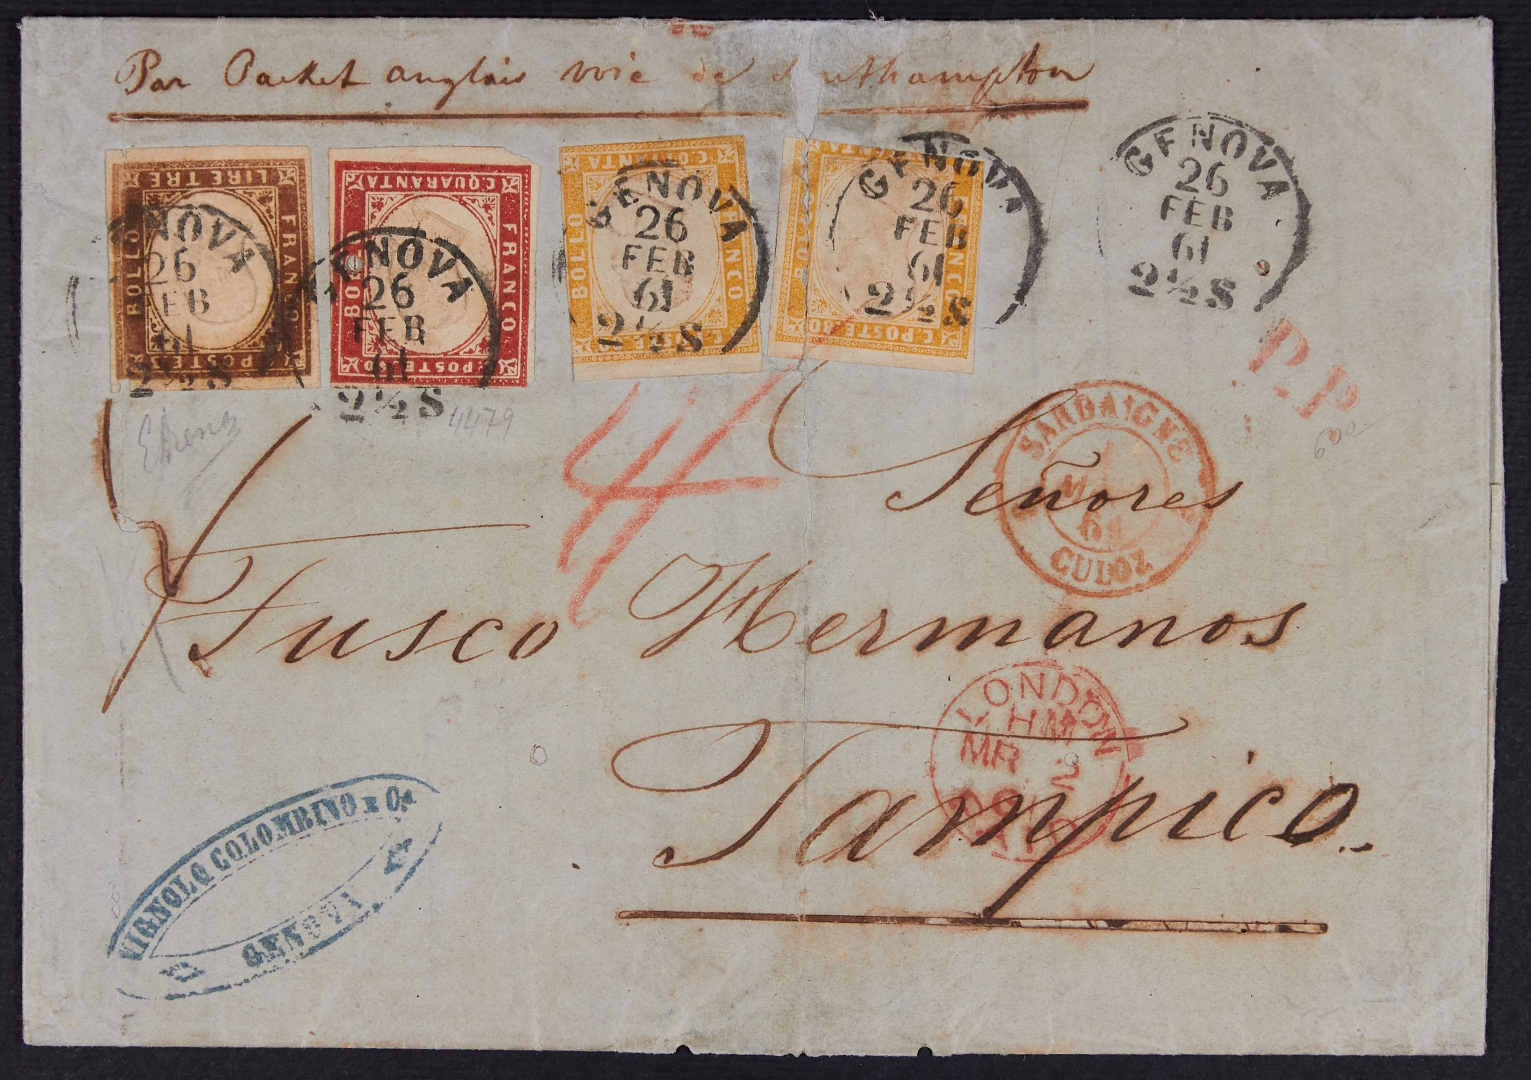 Par Packet anglais voie de Southampton
LIRE TRE
BOLLO
FRANCO
C. POSTE
CQUARANTA
BOLLO
FRANCO
C. POSTE 40
C. OTTANTA
BOLLO
FRANCO
C. POSTE 80
BOLLO
FRANCO
C. POSTE 80
GENOVA
26
FEB
61
2½S
GENOVA
26
FEB
61
2½S
GENOVA
26
FEB
61
2½S
GENOVA
26
FEB
61
2½S
GENOVA
26
FEB
61
2½S
P.P.
4479
600
SARDAIGNE
1
MARS
61
CULOZ
Señores
Fusco Hermanos
Tampico
LONDON
HM
MR 2
PAID
VIGNOLO COLOMBINO E Cia
GENOVA